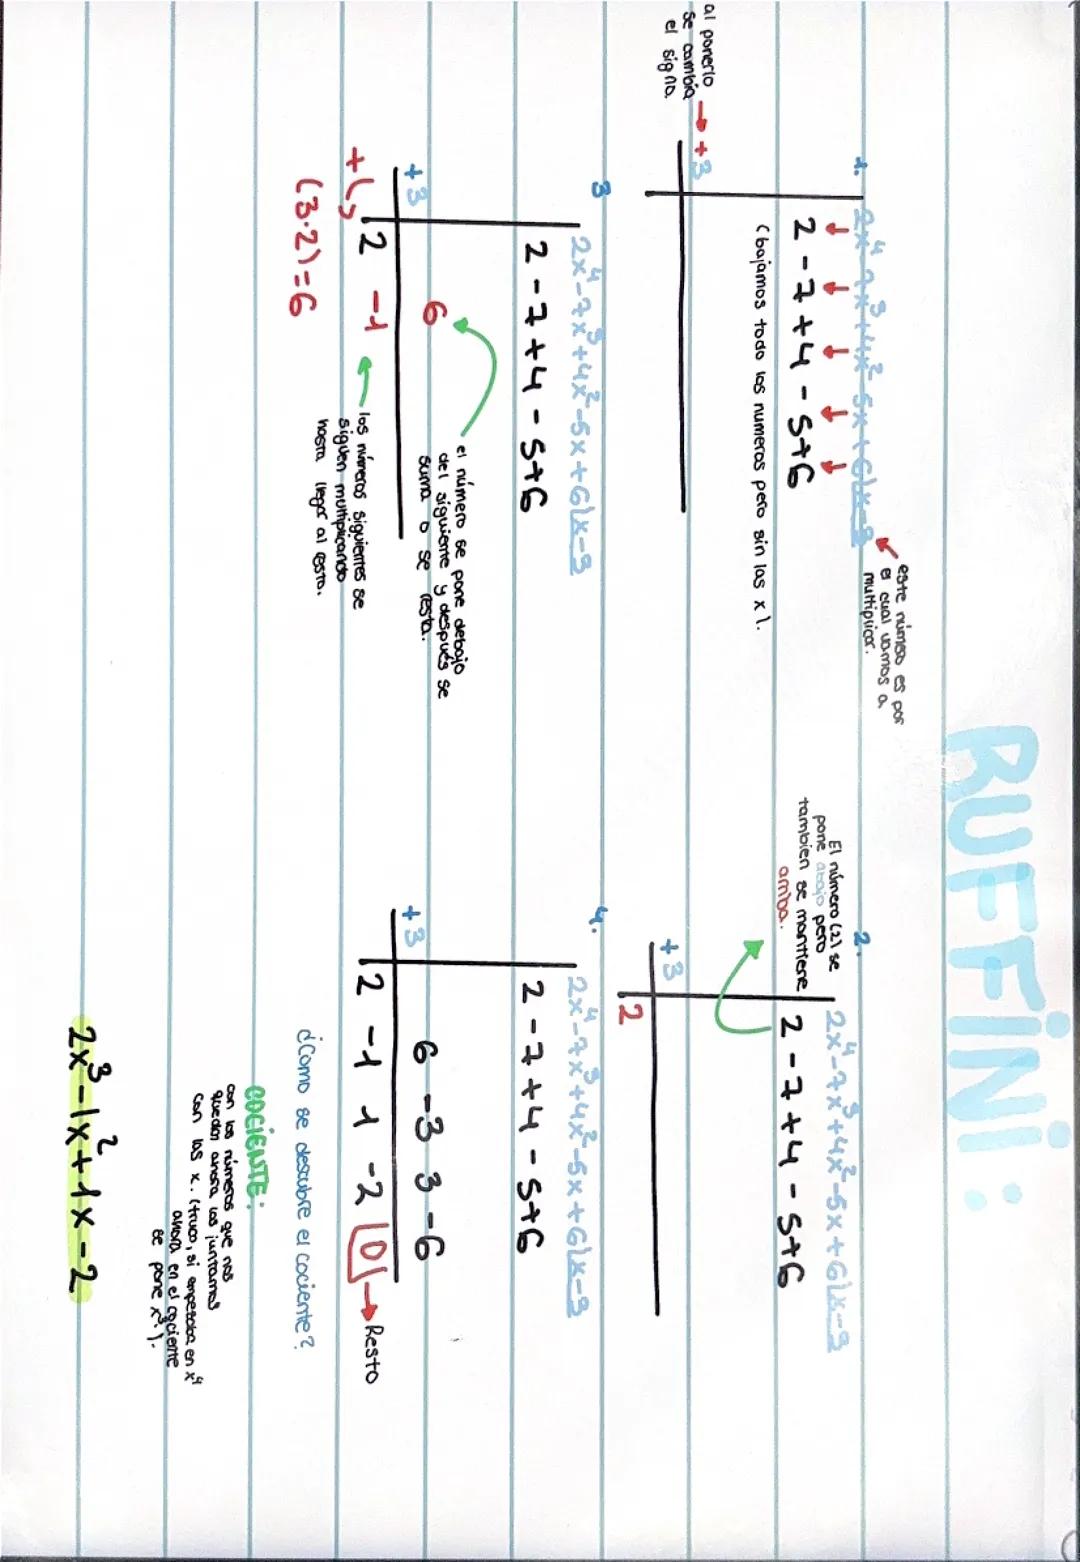 RUFFINI:
1. 2x⁴-7x³+4x²-5x+6|x-3
este número es por
el cual vamos a
multiplicar.
2 -7 +4 -5+6
(bajamos todo los numeros pero sin las x).
al ponerlo → +3
se cambia
el signo.
2. 2x⁴-7x³+4x²-5x+6|x-3
El número (2) se
pone abajo pero
tambien se mantiene
arriba.
2 -7 +4 -5+6
+3
2
3 2x⁴-7x³+4x²-5x+6|x-3
2 -7 +4 -5+6
el número se pone debajo
del siguiente y después se
suma o se resta.
+3 6
2 -1
los números siguientes se
siguen multiplicando
hasta llegar al resto.
+
(3·2)=6
4. 2x⁴-7x³+4x²-5x+6|x-3
2 -7 +4 -5+6
+3 6 -3 3 -6
2 -1 1 -2 |0| → Resto
¿Como se descubre el cociente?
COCIENTE:
con los números que nos
quedan ahora los juntamos
con las x. (truco, si empezaba en x⁴
ahora en el cociente
se pone x³).
2x³-1x²+1x-2